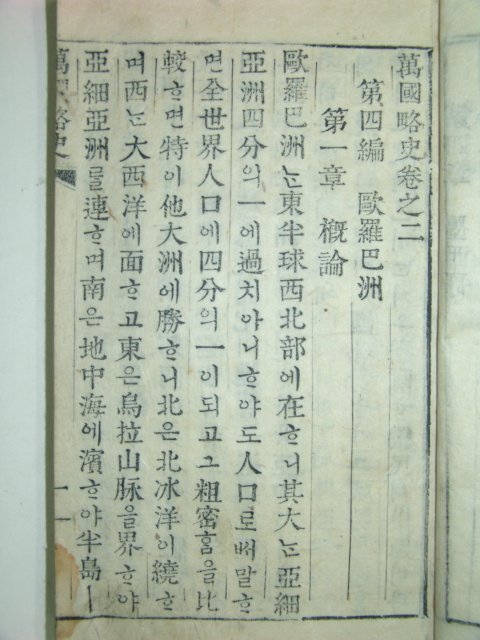 萬國略史卷之二
第四編 歐羅巴洲
第一章 槪論
歐羅巴洲ᄂᆞᆫ東半球西北部에在ᄒᆞ니其大ᄂᆞᆫ亞細
亞洲四分의一에過치아니ᄒᆞ야도人口로ᄡᅥ말ᄒᆞ
면全世界人口에四分의一이되고그粗密홈을比
較ᄒᆞ면特이他大洲에勝ᄒᆞ니北은北冰洋이繞ᄒᆞ
며西ᄂᆞᆫ大西洋에面ᄒᆞ고東은烏拉山脉을界ᄒᆞ야
亞細亞洲를連ᄒᆞ며南은地中海에濱ᄒᆞ야半島ㅣ
萬國略史 一